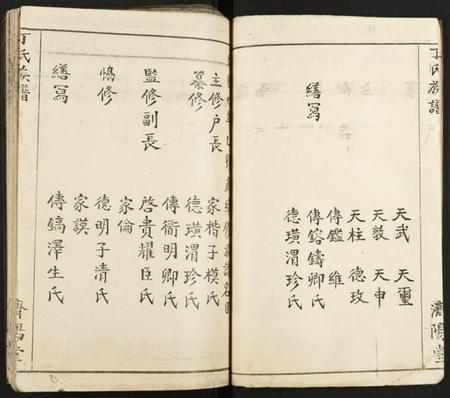 丁氏族譜
濟陽堂
天武 天璽
天敦 天申
天柱 德玫
傳鑑 維
傳鎔鑄卿氏
繕寫
德璜渭珍氏
主修户長
家楷子模氏
纂修
德璜渭珍氏
傳衢明卿氏
監修副長
啓賣耀臣氏
家倫
協修
德明子清氏
家謨
繕寫
傳鎬澤生氏
丁氏族譜
濟陽堂